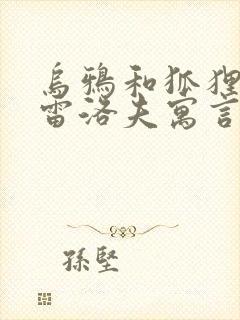 烏鴉和狐狸
雷洛夫寓言
孫堅